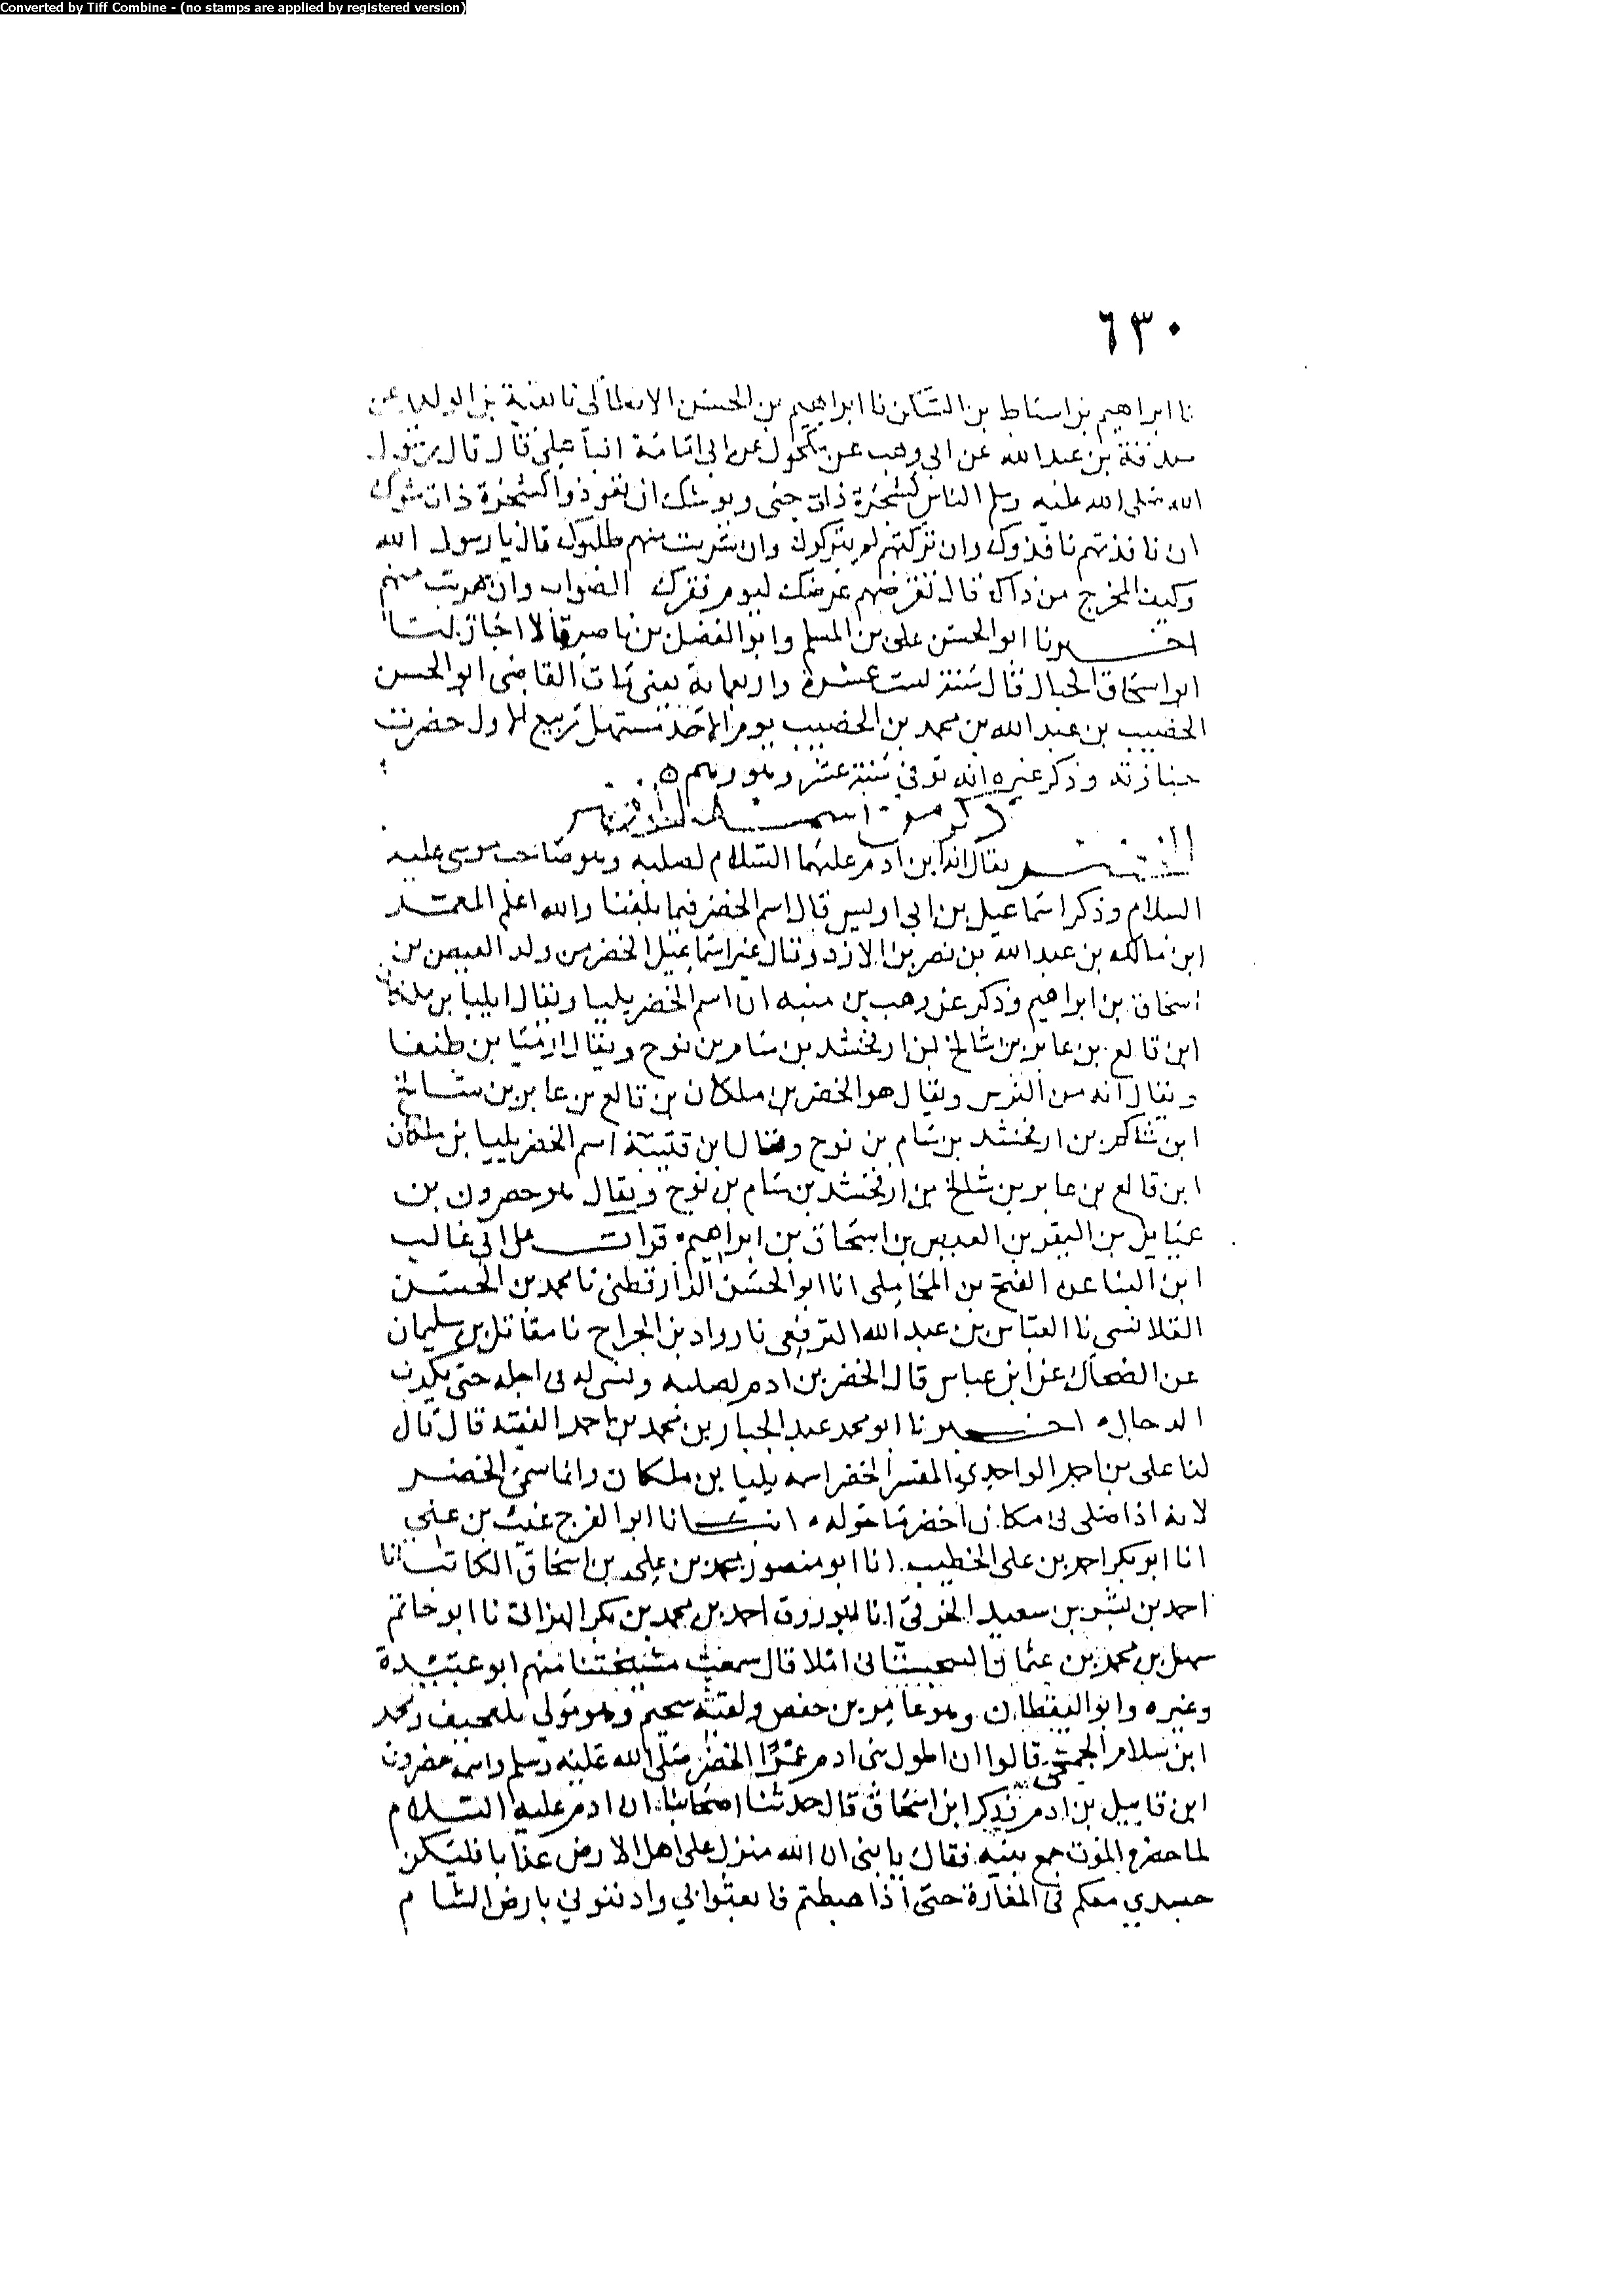 Converted by Tiff Combine - (no stamps are applied by registered version)
٦٣٠
نا ابراهيم بن اسباط بن السكن نا ابراهيم بن الحسن الانطاكي نا بقية بن الوليد عن
صدقة بن عبد الله عن ابي وهب عن مكحول عن ابي امامة الباهلي قال قال رسول
الله صلى الله عليه وسلم الناس كشجرة ذات جنى ويوشك ان تعودوا كشجرة ذات شوك
ان ناقدتهم ناقدوك وان تركتهم لم يتركوك وان هربت منهم طلبوك قال يا رسول الله
وكيف المخرج من ذاك قال تقرضهم عرضك ليوم فقرك الصواب وان هربت منهم
اخبرنا ابو الحسن علي بن المسلم وابو الفضل بن ناصر قالا اجاز لنا
ابو اسحاق الحبال قال سنة ست عشرة واربعماية يعني مات القاضي ابو الحسن
الخصيب بن عبد الله بن محمد بن الخصيب يوم الاحد مستهل ربيع الاول حضرت
جنازته وذكر غيره انه توفي سنة عشر وهو وهم
ذكر من اسمه الخضر
الخضر يقال انه ابن ادم عليهما السلام لصلبه وهو صاحب موسى عليه
السلام وذكر اسماعيل بن ابي اويس قال اسم الخضر فيما بلغنا والله اعلم المعمر
ابن مالك بن عبد الله بن نصر بن الازد وقال غير اسماعيل الخضر من ولد العيص بن
اسحاق بن ابراهيم وذكر عن وهب بن منبه ان اسم الخضر يليا ويقال ايليا بن ملكان
ابن فالغ بن عابر بن شالخ بن ارفخشد بن سام بن نوح ويقال ارميا بن طيفا
ويقال انه من الفرس ويقال هو الخضر بن ملكان بن فالغ بن عابر بن شالخ
ابن شاكر بن ارفخشد بن سام بن نوح وقال ابن قتيبة اسم الخضر يليا بن ملكان
ابن فالغ بن عابر بن شلخ بن ارفخشد بن سام بن نوح ويقال هو خضرون بن
عيايل بن اليفز بن العيص بن اسحاق بن ابراهيم قرات على ابي غالب
ابن البنا عن ابي الفتح بن المحاملي انا ابو الحسن الدارقطني نا محمد بن الحسن
القلانسي نا العباس بن عبد الله الترقفي نا رواد بن الجراح نا مقاتل بن سليمان
عن الضحاك عن ابن عباس قال الخضر بن ادم لصلبه ونسي له في اجله حتى يكذب
الدجال اخبرنا ابو محمد عبد الجبار بن محمد بن احمد الفقيه قال قال
لنا علي بن احمد الواحدي المفسر الخضر اسمه يليا بن ملكان وانما سمي الخضر
لانه اذا صلى في مكان اخضر ما حوله انبانا ابو الفرج غيث بن علي
انا ابو بكر احمد بن علي الخطيب انا ابو منصور محمد بن علي بن اسحاق الكاتب انا
احمد بن بشر بن سعيد الخرقي انا ابو روق احمد بن محمد بن بكر الهزاني نا ابو حاتم
سهل بن محمد بن عثمان السجستاني املا قال سمعت مشيختنا منهم ابو عبيدة
وغيره وابو اليقظان وهو عامر بن حفص ولقبه سحيم وهو مولى بلعجيف ومحمد
ابن سلام الجمحي قالوا ان اطول بني ادم عمرا الخضر صلى الله عليه وسلم واسمه خضرون
ابن قابيل بن ادم وذكر ابن اسحاق قال حدثنا اصحابنا ان ادم عليه السلام
لما حضره الموت جمع بنيه فقال يا بني ان الله منزل على اهل الارض عذابا فليكن
جسدي معكم في المغارة حتى اذا هبطتم فابعثوا بي وادفنوني بارض الشام